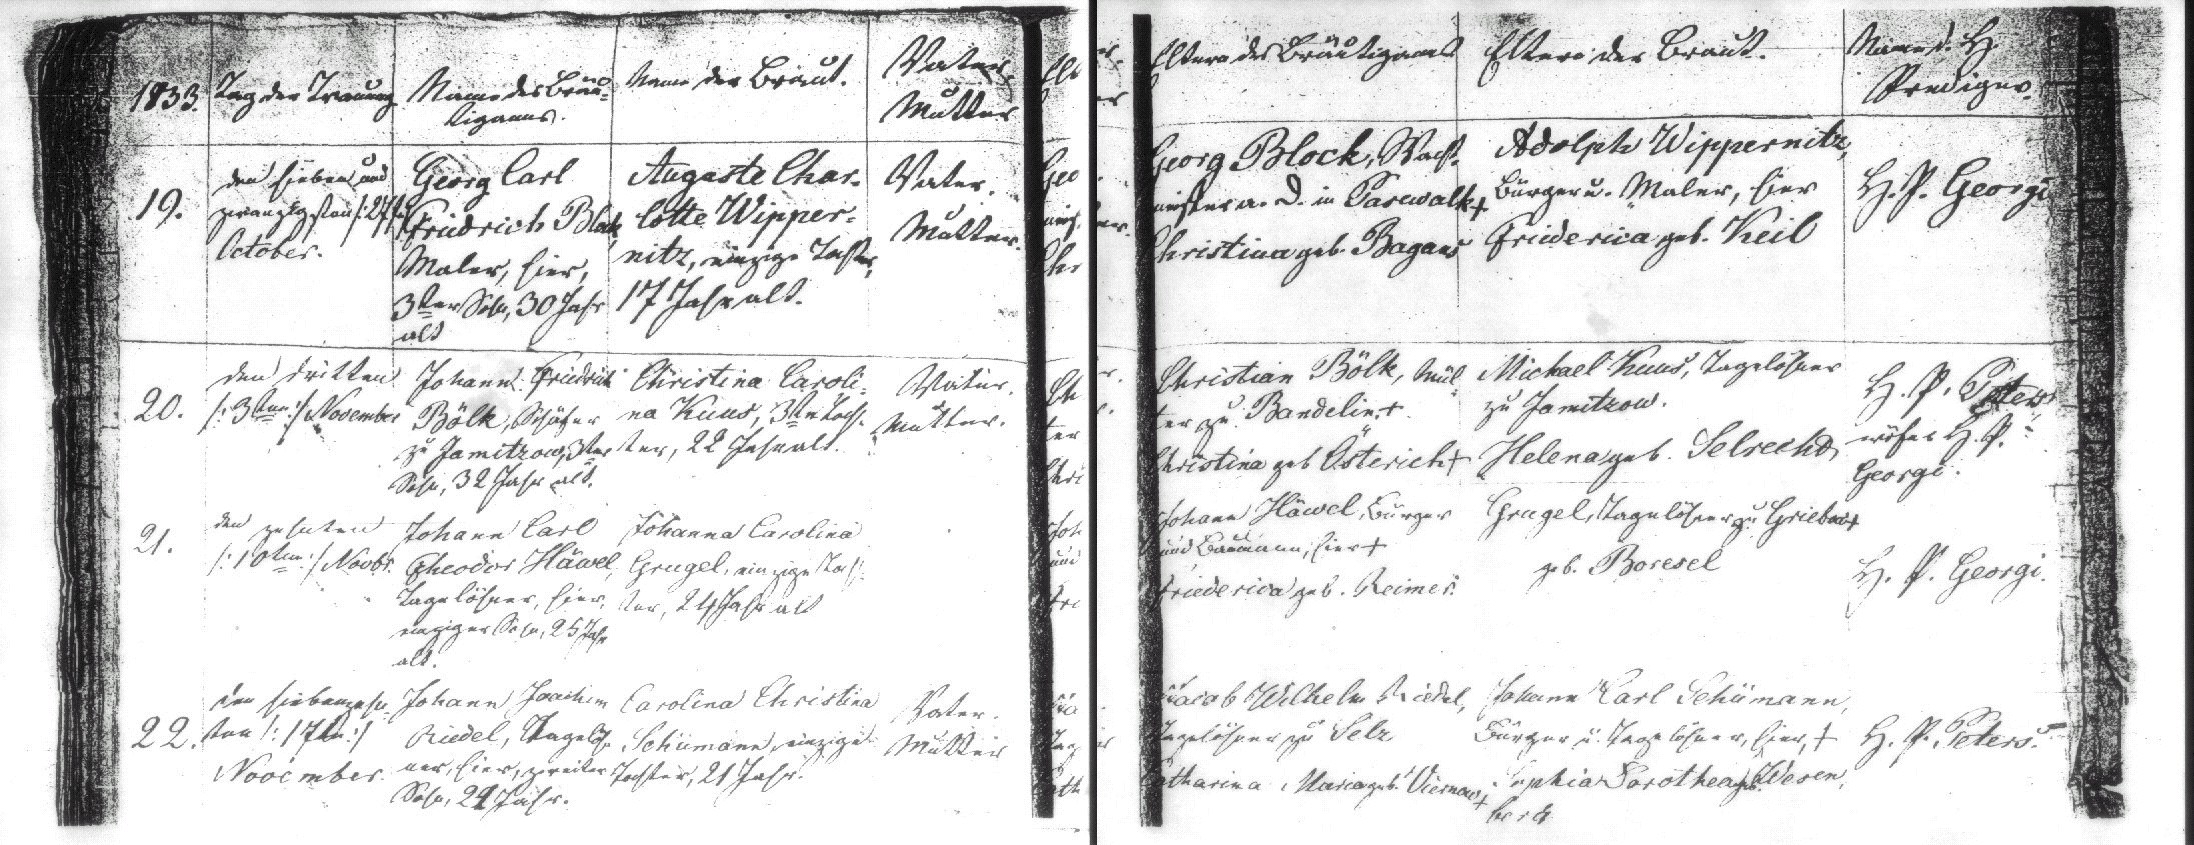 1833.
Tag der Trauung
Name des Bräu-
tigams.
Name der Braut.
Vater
Mutter
19.
den sieben und
zwanzigsten /:27ten:/
October.
Georg Carl
Friedrich Block,
Maler, hier,
3ter Sohn, 30 Jahr
alt
Auguste Char-
lotte Wipper-
nitz, einzige Tochter,
17 Jahr alt.
Vater.
Mutter.
20.
den dritten
/:3ten:/ November
Johann Friedrich
Bölk, Schäfer
zu Jamitzow, 3ter
Sohn, 32 Jahr alt.
Christina Caroli-
na Kuus, 3te Toch-
ter, 22 Jahr alt.
Vater.
Mutter.
21.
den zehnten
/:10ten:/ Novbr.
Johann Carl
Theodor Häwel,
Tagelöhner, hier,
einziger Sohn, 25 Jahr
alt.
Johanna Carolina
Grugel, einzige Toch-
ter, 24 Jahr alt
22.
den siebenzehn-
ten /:17ten:/
November.
Johann Joachim
Riedel, Tagelöh-
ner, hier, zweiter
Sohn, Jahr.
Carolina Christina
Schümann, einzige
Tochter, 21 Jahr.
Vater.
Mutter
Eltern des Bräutigams
Eltern der Braut.
Name d. H.
Prediger.
Georg Block, Wacht-
meister a. D. in Pasewalk +
Christina geb. Bagans
Adolph Wippernitz,
Bürger u. Maler, hier
Friederica geb. Keil
H. P. Georgi
Christian Bölk,
zu Bandelin. +
Christina geb Österich +
Michael Kuus, Tagelöhner
zu Jamitzow.
Helena geb. Selrecht
H. P. Peters
H. P.
Georgi.
Johann Häwel, Bürger
und Baumann, hier +
Friederica geb. Reimer.
Grugel, Tagelöhner zu Griebow +
geb. Boresel
H. P. Georgi.
Jacob Wilhelm Riedel,
Tagelöhner zu Selz
Catharina Maria geb. Viernow +
Johann Carl Schümann,
Bürger u. Tagelöhner, hier, +
Sophia Dorothea geb. Wesen-
berg
H. P. Peters.